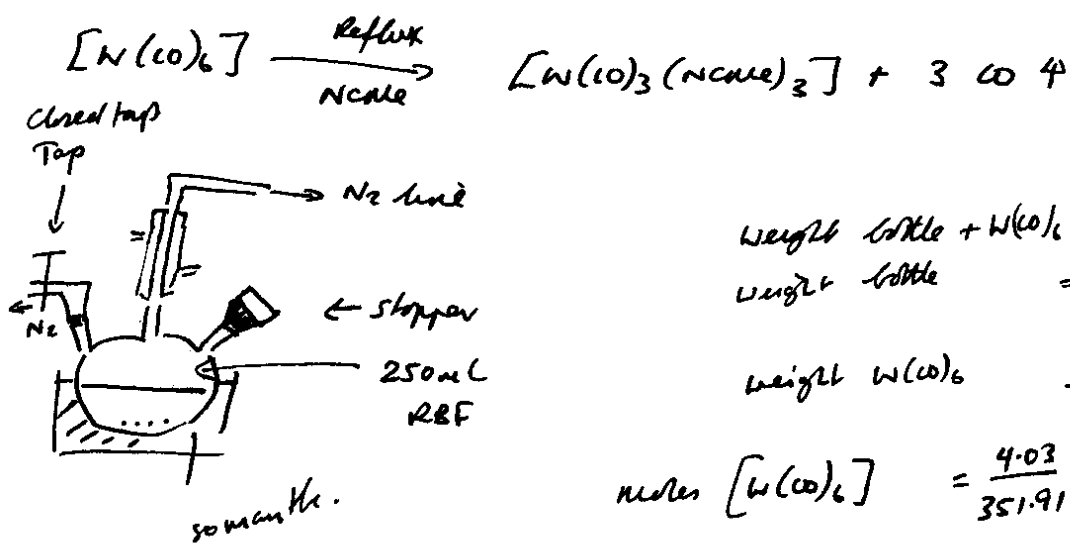 [W(CO)6] Reflux NCMe [W(CO)3(NCMe)3] + 3 CO ↑
Closed tap
Tap
→ N2 line
N2
← stopper
250mL
RBF
weight bottle + W(CO)6
weight bottle =
weight W(CO)6
moles [W(CO)6] = 4.03
351.91